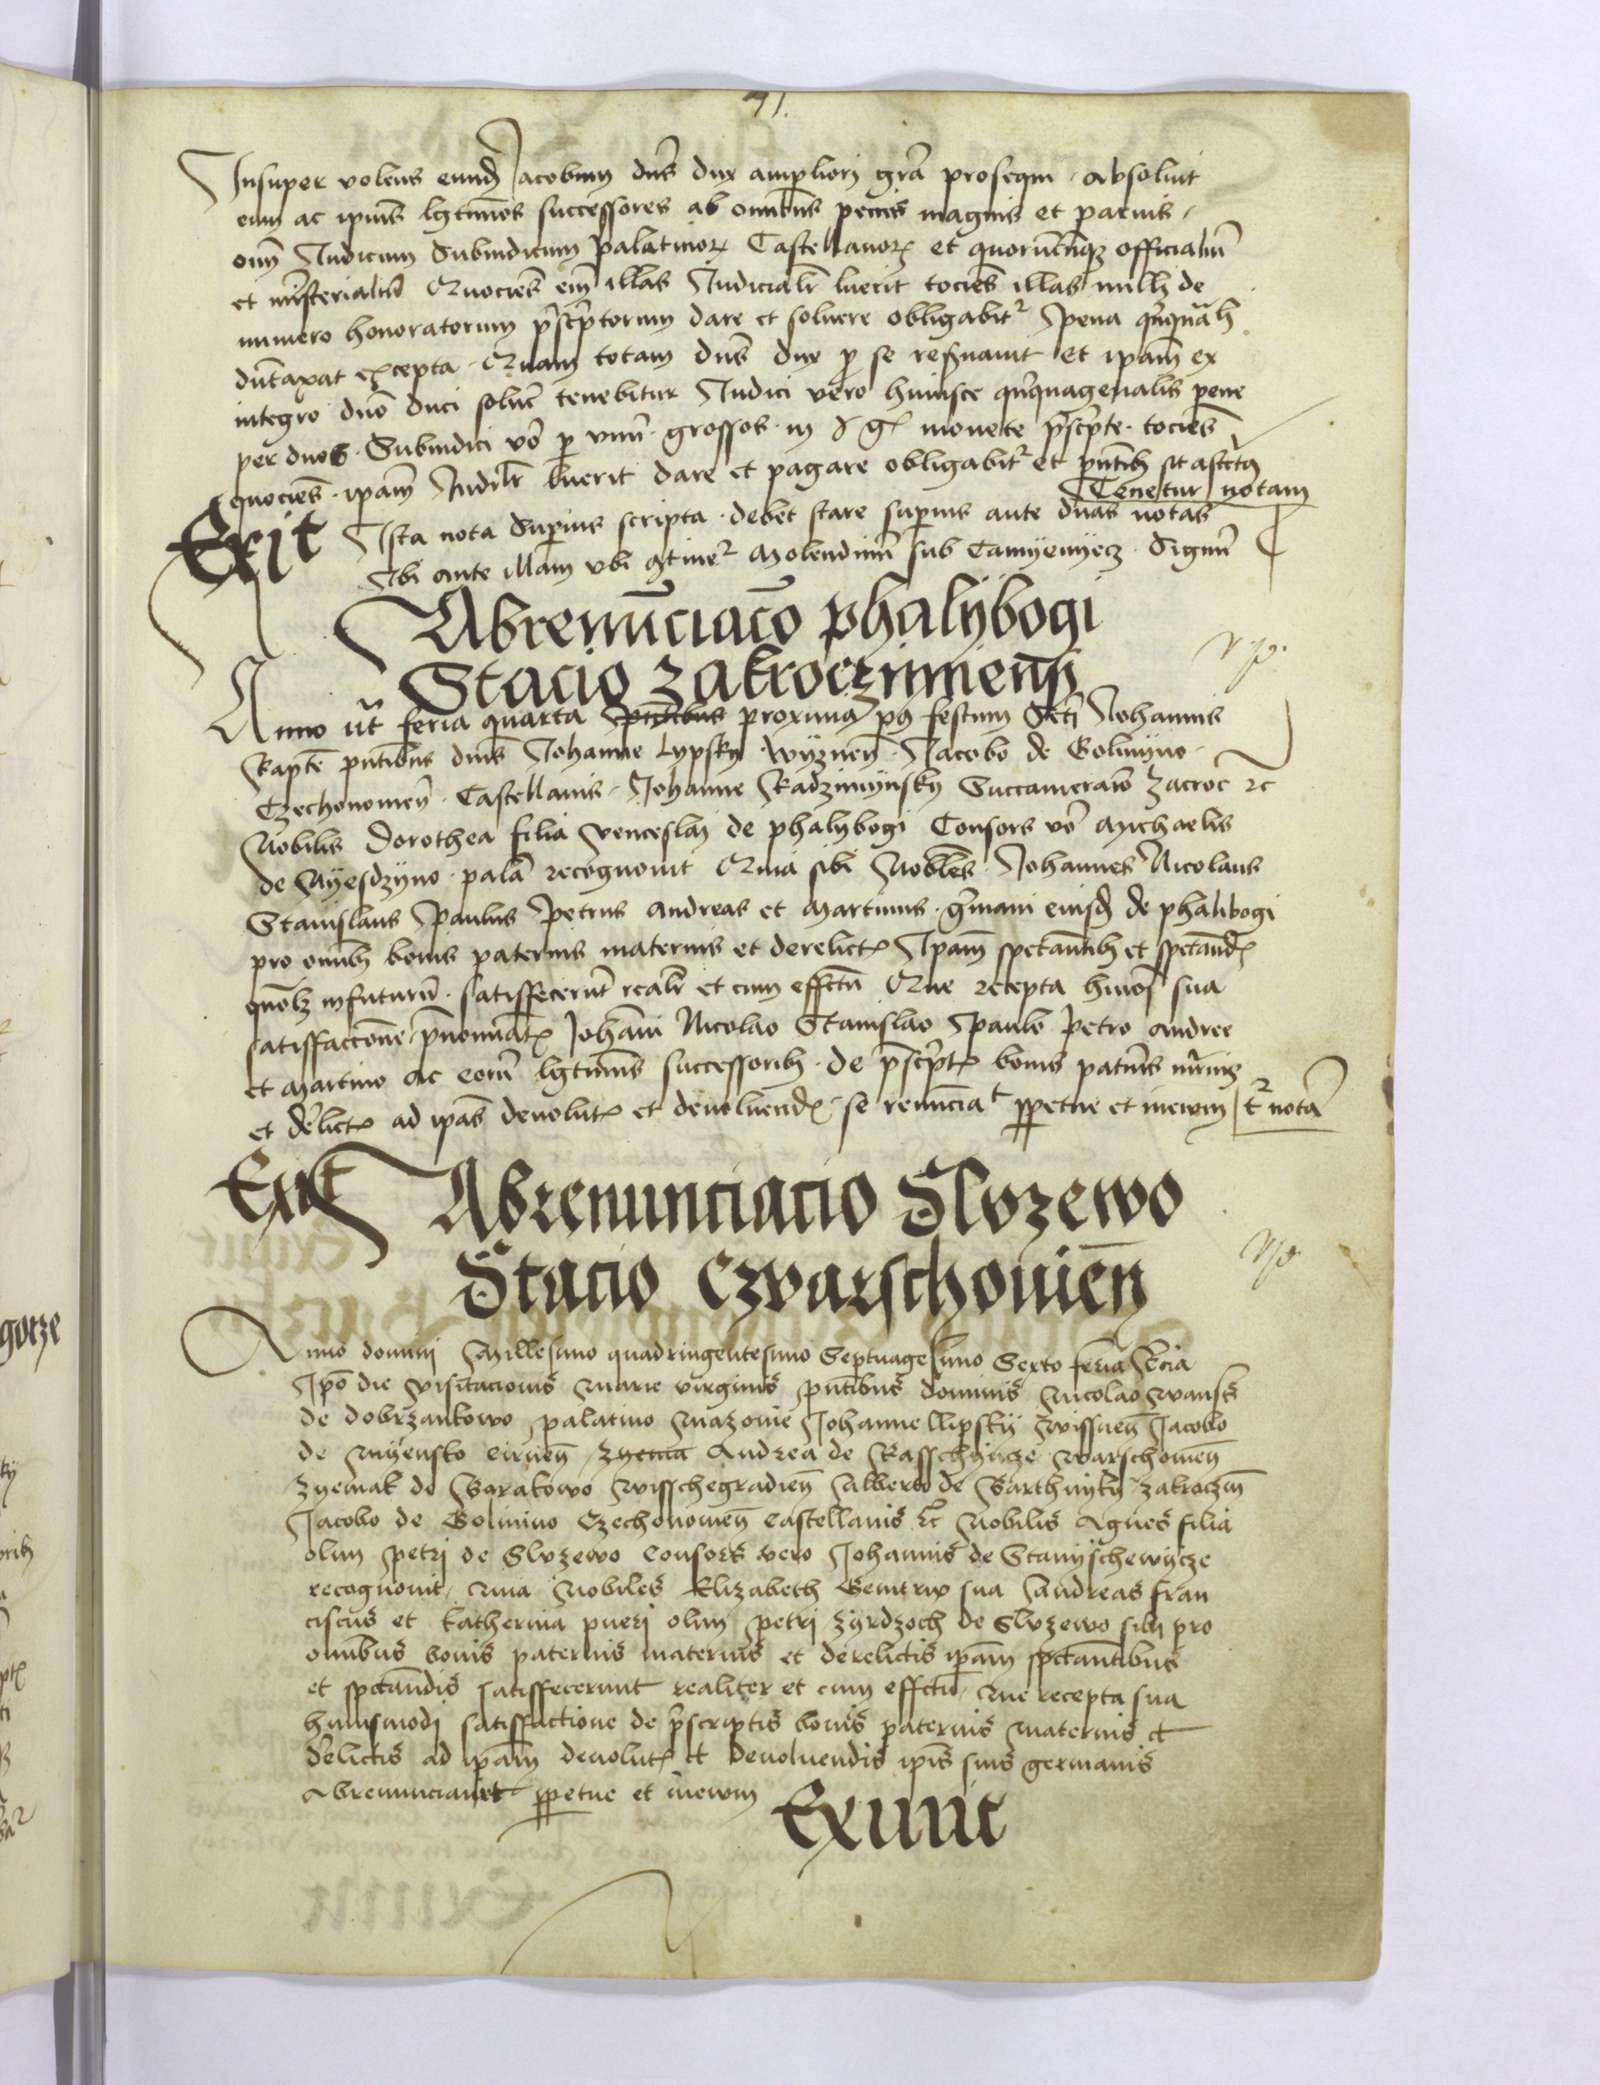 41.
Insuper volens eund Jacobum dns dux ampliori gra prosequi absoluit
eum ac ipius lgtimos successores ab omnibus penis magnis et paruis
oim Judicum Subiudicum palatinor Castellanor et quorumcunqz officialiu
et misterialiu Quociens eni illas Judicialr luerit tociens illas nullz de
numero honoratorum pscptorum dare et soluere obligabit pena qnquah
duntaxat excepta Quam totam dns dux p se resuauit et ipam ex
integro dno duci soluer tenebitur Judici vero huiusce qnquagenalis pene
per duos Subiudici vo p vnu grossos in gl monete pscpte tociens
quociens ipam Judilr luerit dare et pagare obligabit et pntibz
Tenetur notam
Exit Ista nota superius scripta debet stare superius ante duas notas
ibi ante illam vbi gtinet Molendinu sub Camyenyecz Signu
Abrenunciaco phalybogi
Stacio zakroczimiensi
Anno ut feria quarta pntibus proxima ps festum Scti Johannis
Bapte pntibus dnis Johanne Lypsky Wyznen Jacobo de Golmyno
Czechonomen Castellanis Johanne Radzimynsky Succamerario Zacroc rc
Nobilis Dorothea filia venceslai de phalybogi Consors vo Michaelis
de Nyesdzyno pala recognouit Quia sibi Nobles Johannes Nicolaus
Stanislaus Paulus Petrus Andreas et Martinus gmani eiusd de phalibogi
pro omibz bonis paternis maternis et derelict Ipam spectantibz et spectand
quolz infuturu satisfecerut realr et cum effctu Que recepta huiosi sua
satisfaccione pnominat Johani Nicolao Stanislao Paulo Petro Andree
et Martino ac eoru lgtimis successoribz de pscpt bonis patnis mrnis
et delict ad ipas deuolut et deuoluend se renuncia ppetue et in ewm t nota
Exit Abrenunciacio Sluzewo
Stacio Czvarschouien
Anno domini Millesimo quadringentesimo Septuagesimo Sexto feria Tcia
Ipo die visitacionis Marie virginis pntibus dominis Nicolao
de dobrzankowo palatino Mazouie Johanne llipsky Wissnen Jacobo
de Myensko Cirnen zyema Andrea de Rasschyncze Warschouien
zyemak de Gorakowo Wisschegradien Alberto de Barthnyky zakroczim
Jacobo de Golmino Czechonomen Castellanis rc Nobilis Agnes filia
olim Petri de Sluzewo Consors vero Johannis de Stanyschewycze
recognouit Quia Nobiles Elizabeth Genitrix sua Andreas fran
ciscus et katherina pueri olim Petri zyrdzoch de Sluzewo sibi pro
omibus bonis paternis maternis et derelictis ipam spctantibus
et spctandis satisfecerunt realiter et cum effctu Que recepta sua
huiusmodi satisfactione de pscriptis bonis paternis maternis et
delictis ad ipam deuolut et deuoluendis ipis suis germanis
Abrenunciauit ppetue et in ewm
Exiuit